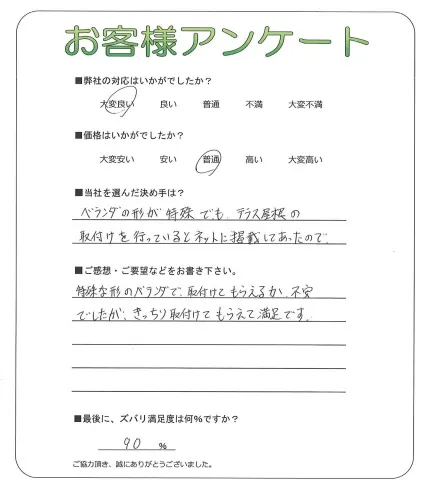 お客様アンケート
■弊社の対応はいかがでしたか?
大変良い 良い 普通 不満 大変不満
■価格はいかがでしたか?
大変安い 安い 普通 高い 大変高い
■当社を選んだ決め手は?
ベランダの形が特殊でも、テラス屋根の
取付けを行っているとネットに掲載してあったので、
■ご感想・ご要望などをお書き下さい。
特殊な形のベランダで、取付けてもらえるか、不安
でしたが、きっちり取付けてもらえて満足です。
■最後に、ズバリ満足度は何%ですか?
90 %
ご協力頂き、誠にありがとうございました。